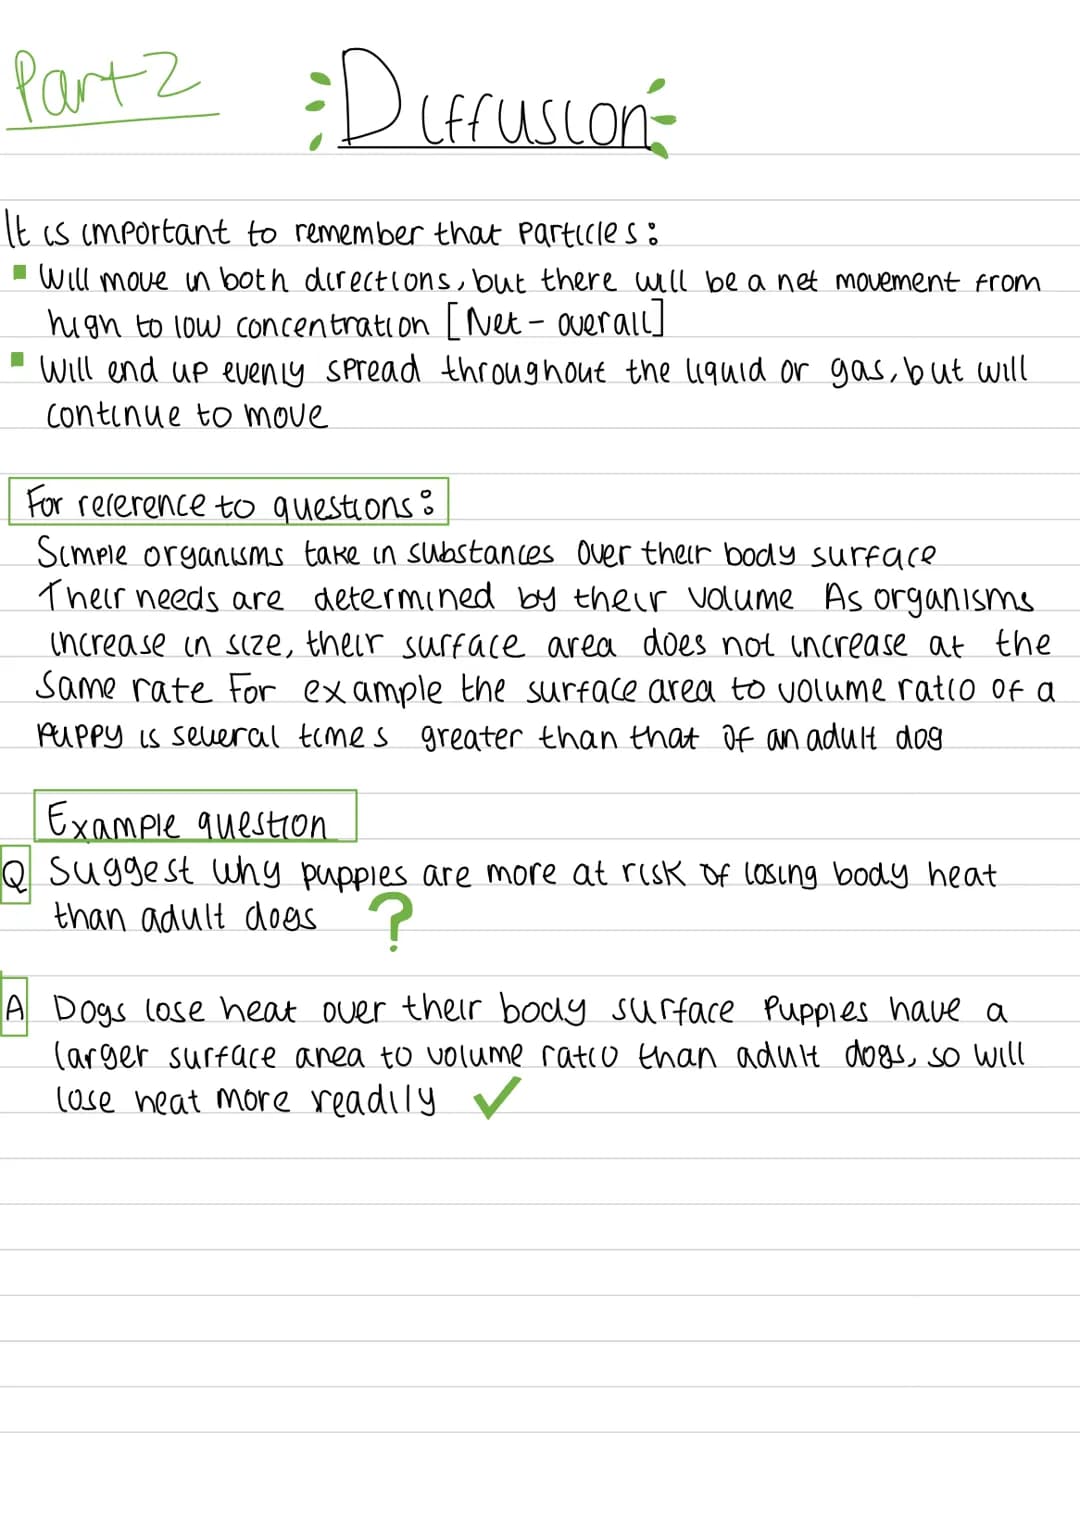 Part 2
Diffusion
It is important to remember that particles:
Will move in both directions, but there will be a net movement from
high to low concentration [Net - overall]
Will end up evenly spread throughout the liquid or gas, but will
continue to move
For reference to questions:
Simple organisms take in substances over their body surface
Their needs are determined by their volume As organisms
increase in size, their surface area does not increase at the
same rate For example the surface area to volume ratio of a
puppy is several times greater than that of an adult dog
Example question
Q Suggest why puppies are more at risk of losing body heat
than adult dogs ?
A Dogs lose heat over their body surface Puppies have a
larger surface area to volume ratio than adult dogs, so will
lose heat more readily ✓